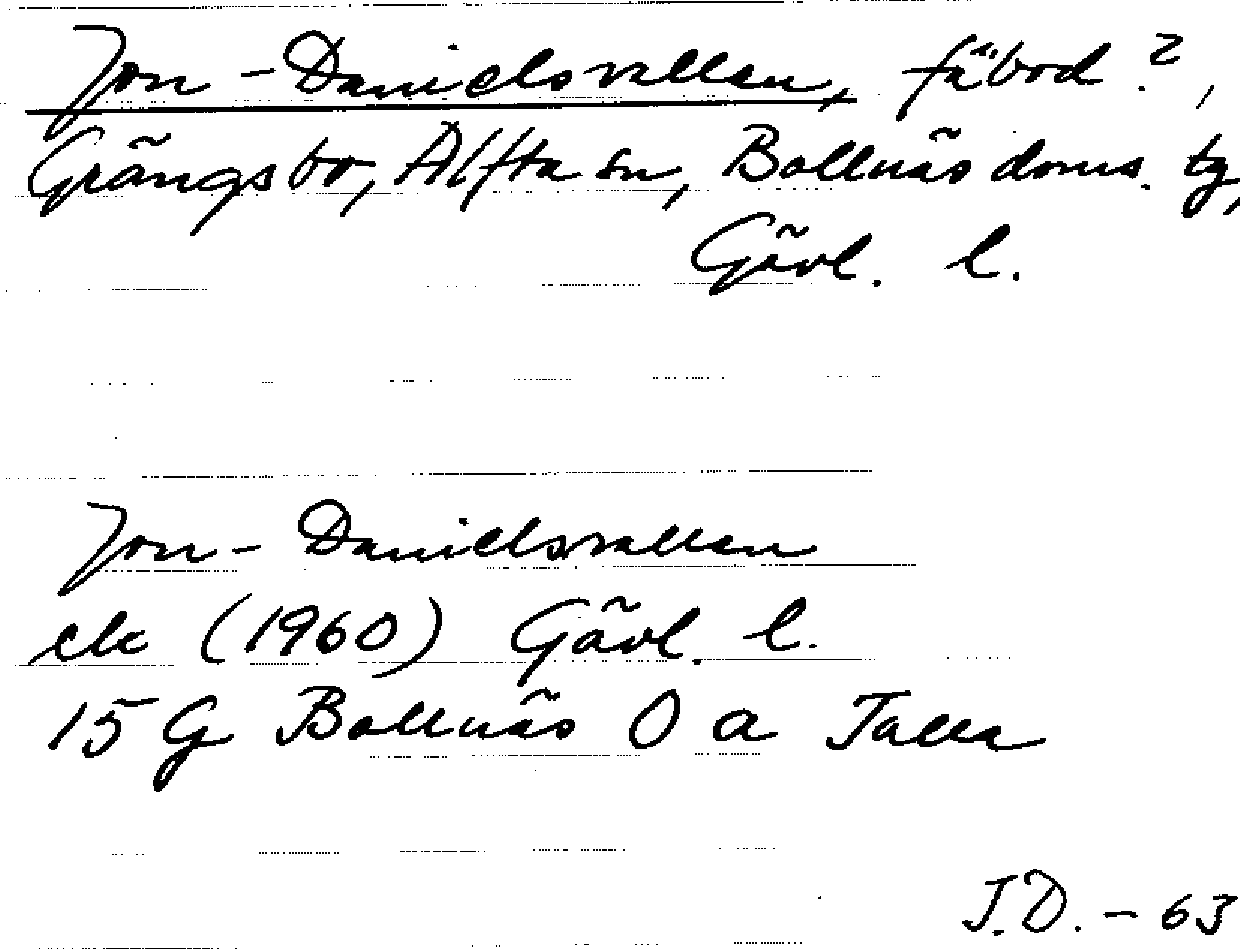 Jon-Danielsvallen, fäbod?,
Grängsbo, Alfta sn, Bollnäs doms. tg,
Gävl. l.
Jon-Danielsvallen
ek (1960) Gävl. l.
15 G Bollnäs O a
J.D. - 63